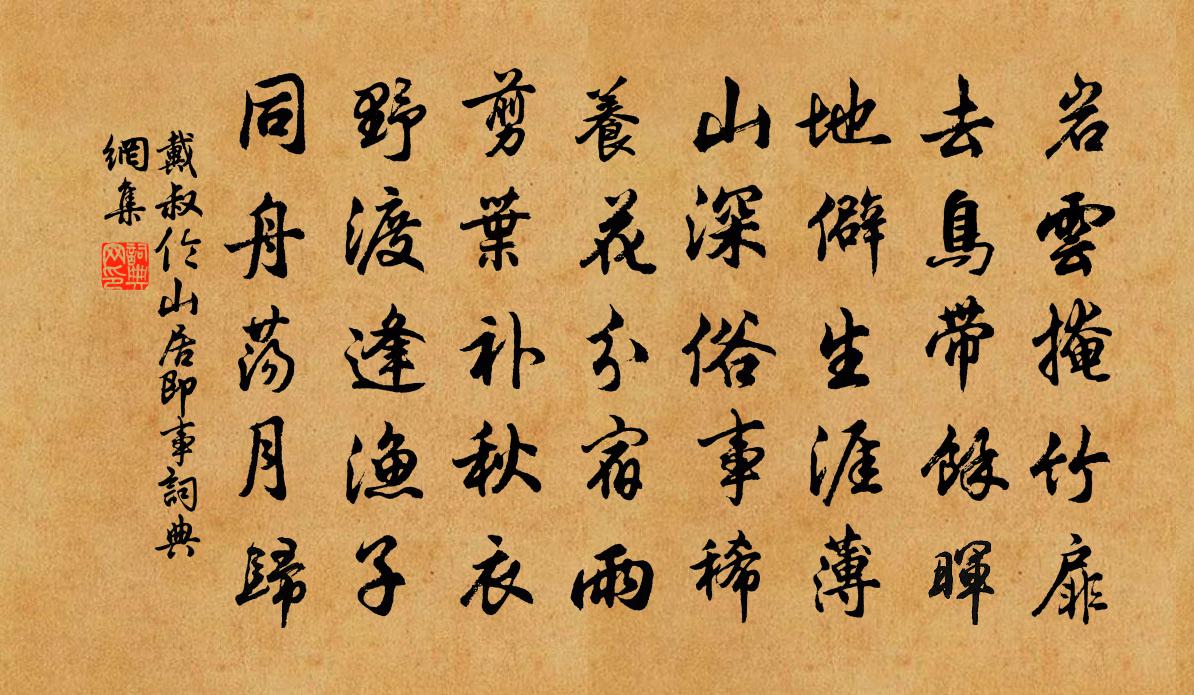 岩雲掩竹扉
去鳥帶餘暉
地僻生涯薄
山深俗事稀
養花分宿雨
剪葉补秋衣
野渡逢漁子
同舟蕩月歸
戴叔倫山居即事詞典
網集
詞典
网印